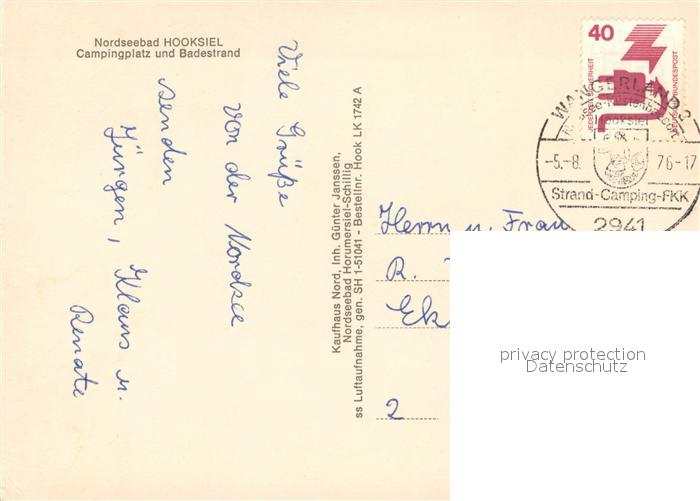 Nordseebad HOOKSIEL
Campingplatz und Badestrand
Viele Grüße
von der Nordsee
senden
Jürgen, Klaus u.
Renate
Kaufhaus Nord, Inh. Günter Janssen,
Nordseebad Horumersiel-Schillig
ss Luftaufnahme, gen. SH 1-51041 - Bestellnr. Hook LK 1742 A
40
JEDERZEIT SICHERHEIT
DEUTSCHE BUNDESPOST
WANGERLAND 2
Hooksiel
-5.-8. 76-17
Strand-Camping-FKK
2941
Herrn u. Frau
R.
2
privacy protection
Datenschutz